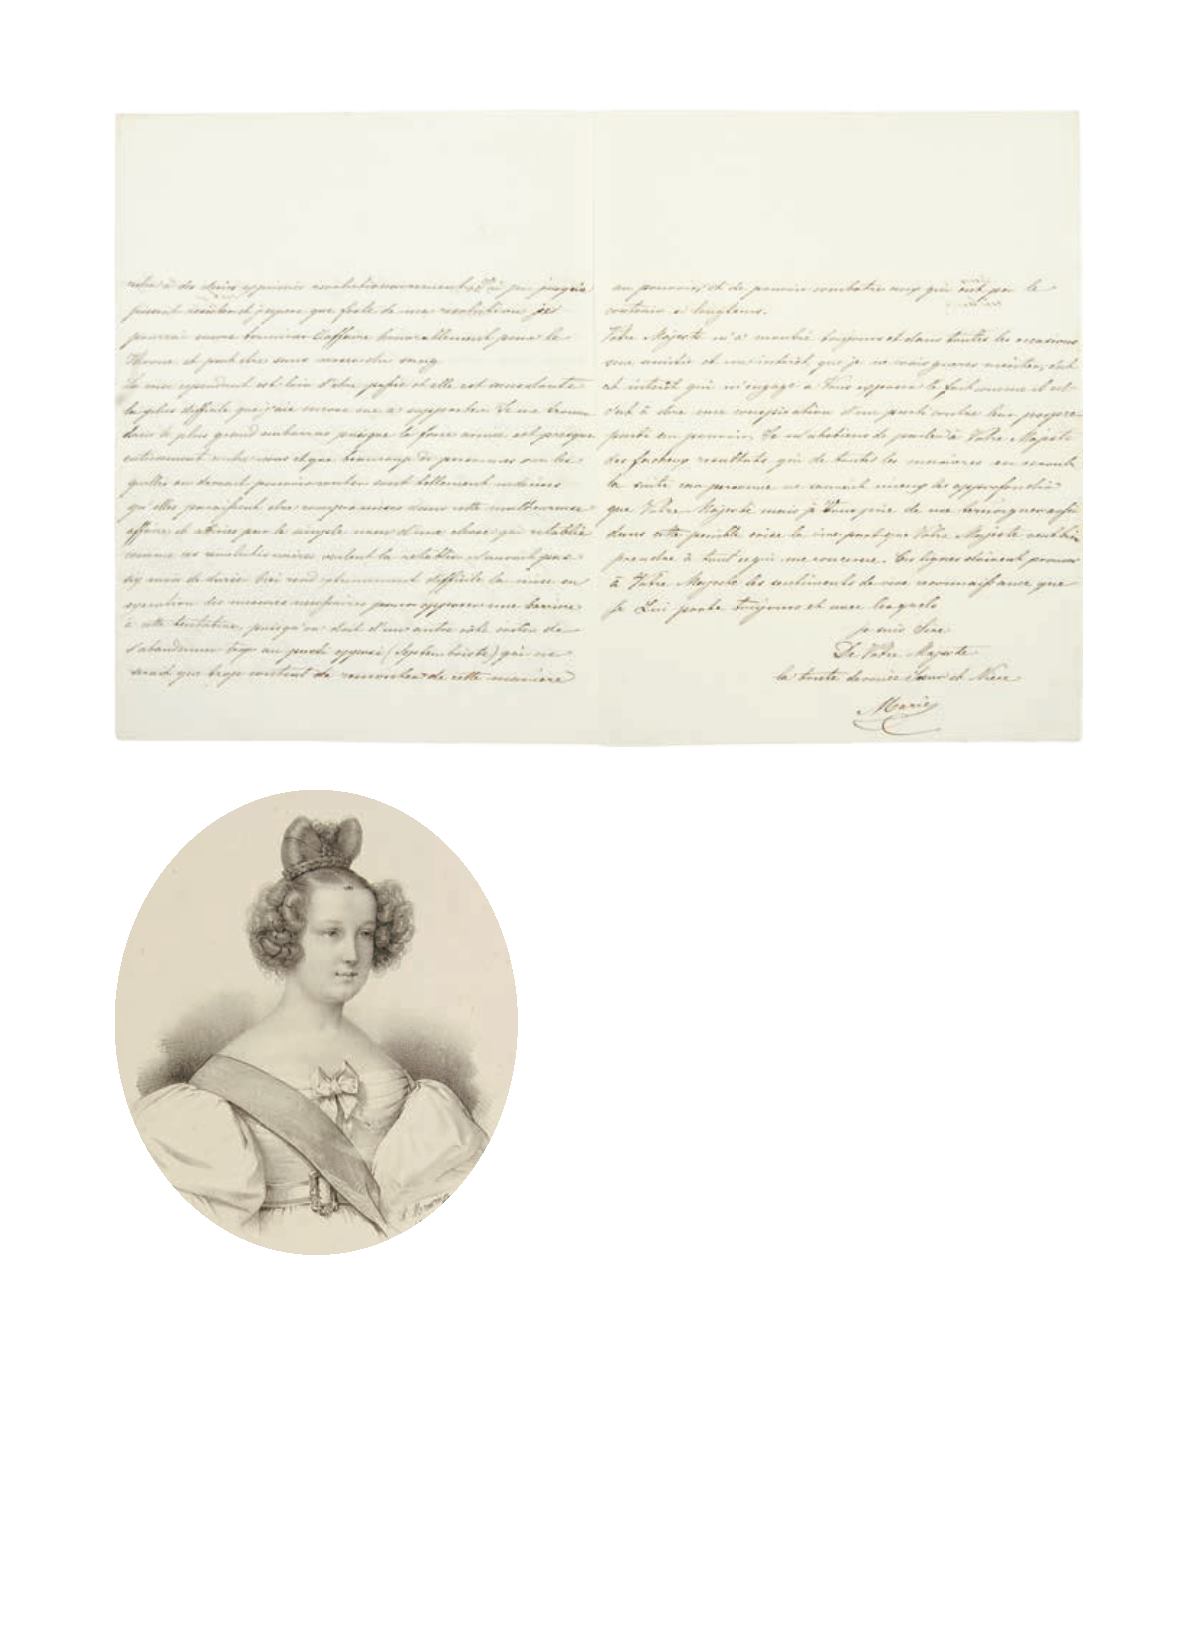 céder à des désirs exprimés revolutionnairement. J'ai pu jusqu'à
présent résister et j'espère que forte de ma resolution je
pourrai encore terminer l'affaire honorablement pour le
Throne et peut être sans verser du sang
La crise cependant est loin d'être passée et elle est assurément
la plus difficile que j'aie encore eue a supporter. Je me trouve
dans le plus grand embarras puisque la force armée est presque
entierement contre nous et que beaucoup de personnes sur les
quelles on devait pouvoir conter sont tellement
qu'elles paraissent être compromises dans cette malheureuse
affaire et par le simple nom d'une chose qui retablie
comme ces revolutionnaires veulent la retablir n'aurait pas
six mois de durée. Ceci rend extremement difficile la mise en
operation des mesures necessaires pour opposer une barriere
à cette tentative, puisqu'on doit d'un autre côté eviter de
s'abandonner trop au parti opposé (Septembriste) qui ne
serait que trop content de remonter de cette manière
au pouvoir et de pouvoir combattre ceux qui ont pu le
contenir si longtems.
Votre Majesté m'a montré toujours et dans toutes les occasions
une amitié et un interêt, que je ne crois guères meriter, c'est
cet interêt qui m'engage a Vous exposer le fait comme il est
c'est à dire une conspiration d'un parti contre leur propre
parti au pouvoir. Je m'abstiens de parler à Votre Majesté
des facheux resultats qui de toutes les manières en seront
la suite car personne ne saurait mieux les approfondir
que Votre Majesté mais je Vous prie de me temoigner aussi
dans cette penible crise la vive part que Votre Majesté veut bien
prendre à tout ce qui me concerne. Ces lignes doivent prouver
à Votre Majesté les sentiments de vive reconnaissance que
je Lui porte toujours et avec lesquels
je suis Sire
De Votre Majesté
la toute devouée Sœur et Nièce
Marie